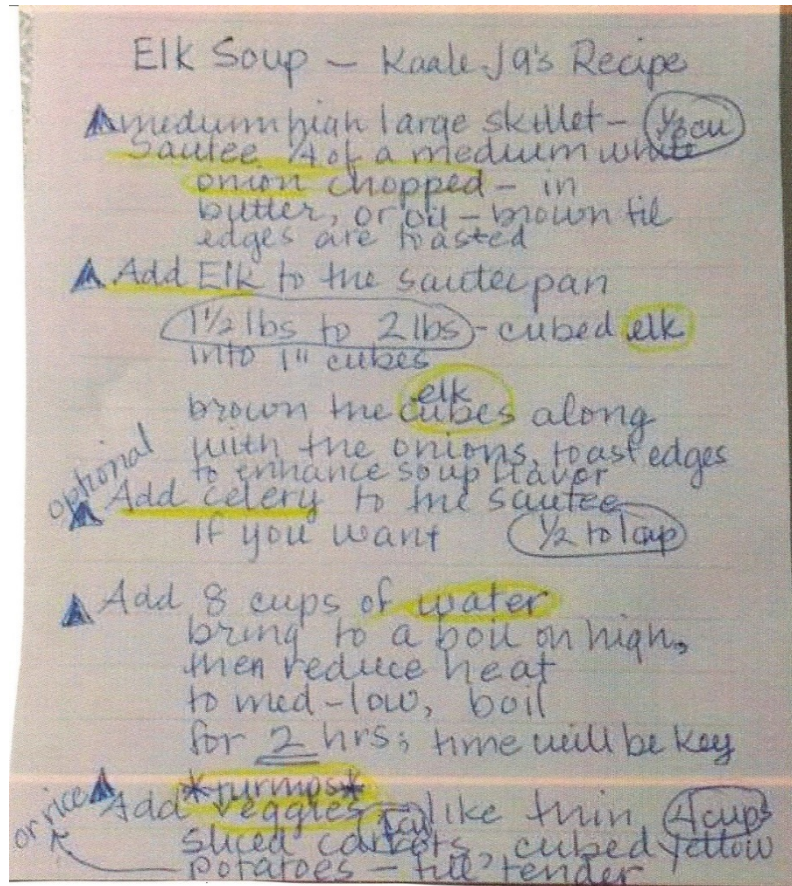 Elk Soup – Kaale Ja's Recipe
medium high large skillet – 1/2 cu
Sautee 1/4 of a medium white
onion chopped – in
butter, or oil – brown til
edges are toasted
Add Elk to the sautee pan
1 1/2 lbs to 2 lbs – cubed elk
into 1" cubes
elk
brown the cubes along
with the onions, toast edges
to enhance soup flavor
optional
Add celery to the sautee
If you want 1/2 to 1 cup
Add 8 cups of water
bring to a boil on high,
then reduce heat
to med-low, boil
for 2 hrs; time will be key
*turnips*
or rice
Add veggies – like thin 4 cups
sliced carrots, cubed yellow
potatoes – till tender